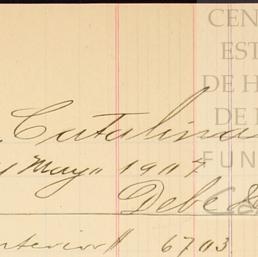 CEN
EST
DE H
DE
FUN
Catalina
Mayo 1907
Debe
nterior 6703